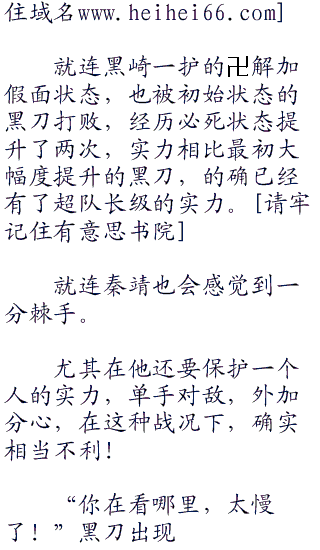 住域名www.heihei66.com]
就连黑崎一护的卍解加
假面状态，也被初始状态的
黑刀打败，经历必死状态提
升了两次，实力相比最初大
幅度提升的黑刀，的确已经
有了超队长级的实力。[请牢
记住有意思书院]
就连秦靖也会感觉到一
分棘手。
尤其在他还要保护一个
人的实力，单手对敌，外加
分心，在这种战况下，确实
相当不利！
“你在看哪里，太慢
了！”黑刀出现